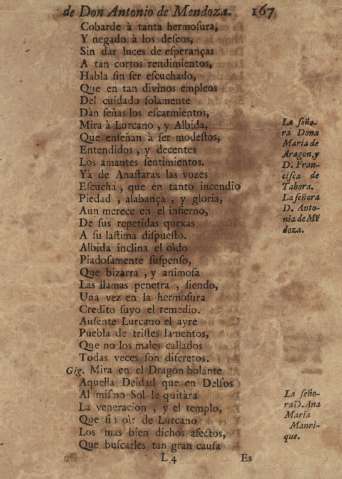 de Don Antonio de Mendoza. 167
Cobarde à tanta hermosura,
Y negado à los deseos,
Sin dar luces de esperanças
A tan cortos rendimientos,
Habla sin ser escuchado,
Que en tan divinos empleos
Del cuidado solamente
Dan señas los escarmientos,
Mira à Lurcano, y Albida,
Que enseñan à ser modestos,
Entendidos, y decentes
Los amantes sentimientos.
Ya de Anastarax las vozes
Escucha, que en tanto incendio
Piedad, alabança, y gloria,
Aun merece en el infierno,
De sus repetidas quexas
A su lastima dispuesto.
Albida inclina el oìdo
Piadosamente suspenso,
Que bizarra, y animosa
Las llamas penetra, siendo,
Una vez en la hermosura
Credito suyo el remedio.
Ausente Lurcano el ayre
Puebla de tristes lamentos,
Que no los males callados
Todas veces son discretos.
Gig. Mira en el Dragon bolante
Aquella Deidad que en Delfos
Al mismo Sol le quitàra
La veneracion, y el templo,
Que sin oìr de Lurcano
Los mas bien dichos afectos,
Que buscarles tan gran causa
L 4 Es
La seño-
ra Dona
Maria de
Aragon, y
D. Fran-
cisca de
Tabora.
La señora
D. Anto-
nia de Mē
doza.
La seño-
ra D. Ana
Maria
Manri-
que.